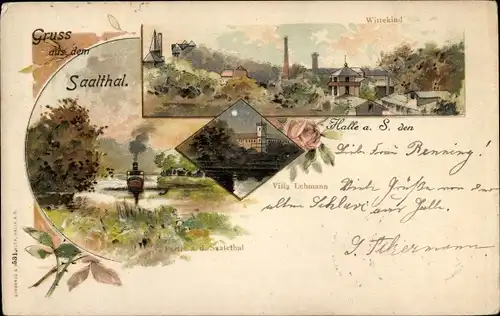 Gruss
aus dem
Saalthal.
Wittekind
Halle a. S. den
Villa Lehmann
Partie a. d. Saalethal
Liebe Frau Renning!
Viele Grüße von der
alten Schlavi aus Halle.